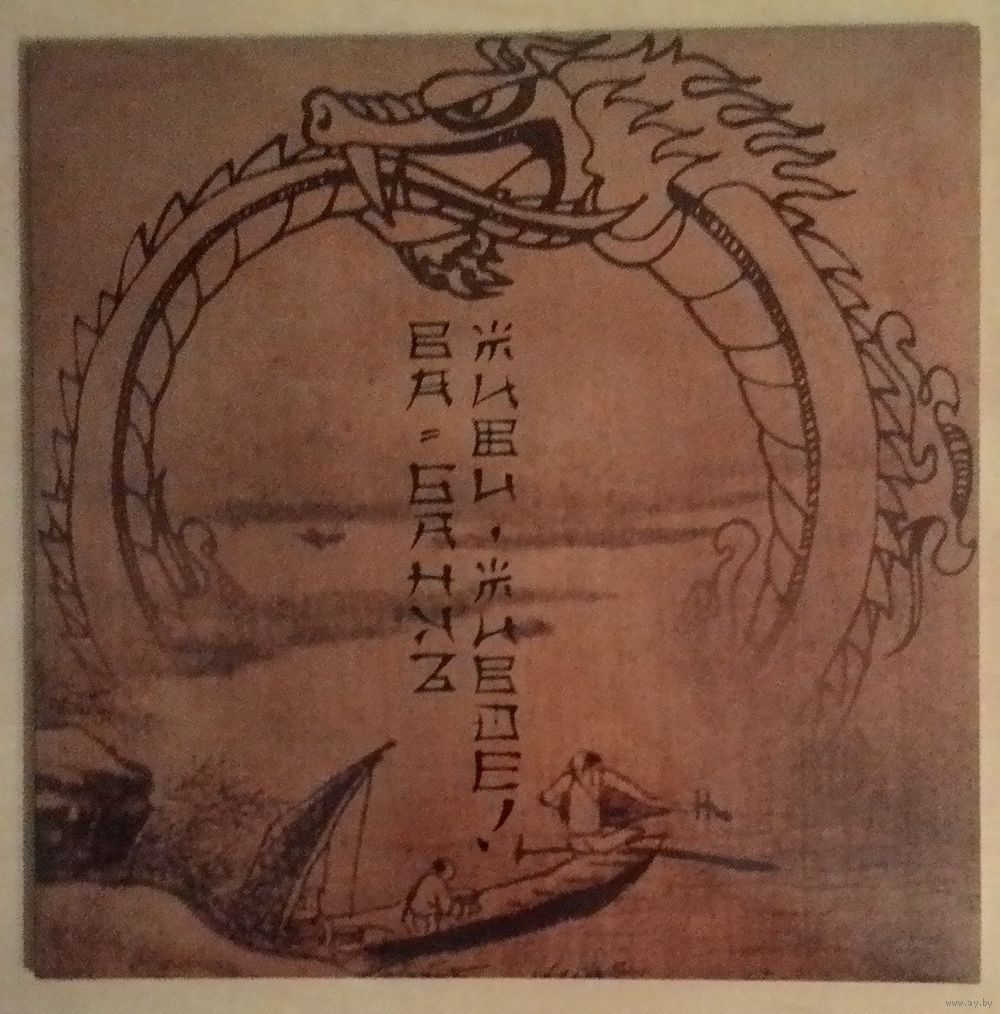 ВА=БАНКЪ
ЖИВИ, ЖИВОЕ!
www.ay.by